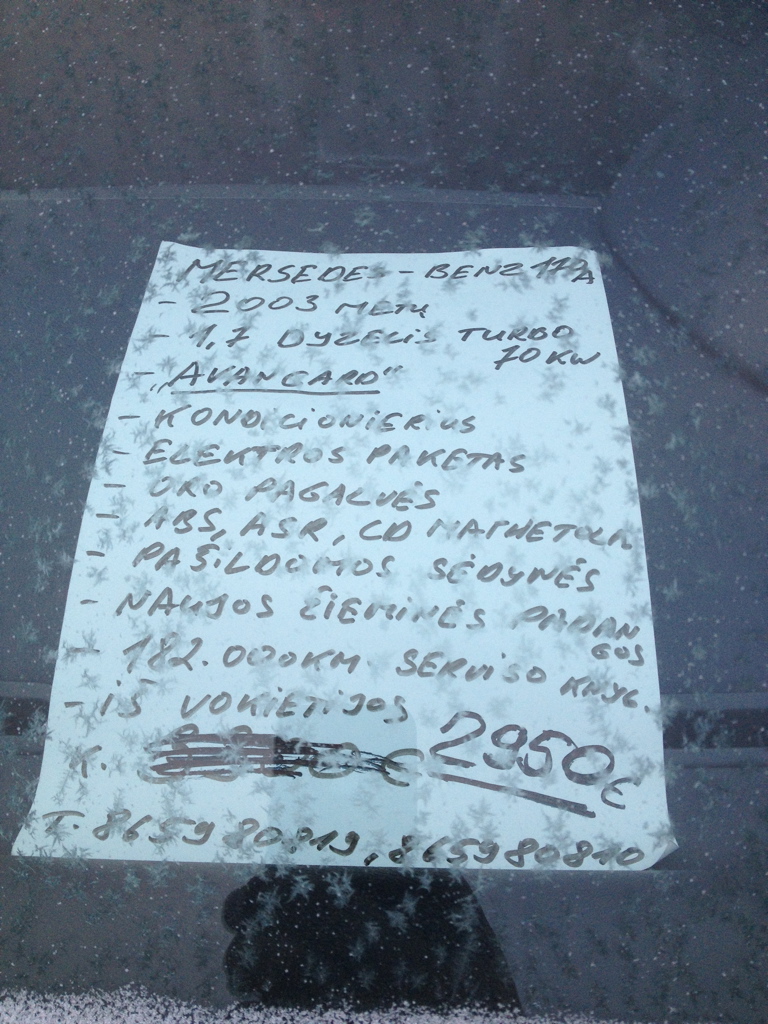 MERSEDES-BENZ 170A
- 2003 METŲ
- 1,7 DYZELIS TURBO
70 KW
- „AVANGARD“
- KONDICIONIERIUS
- ELEKTROS PAKETAS
- ORO PAGALVĖS
- ABS, ASR, CD MAGNETOLA
- PAŠILDOMOS SĖDYNĖS
- NAUJOS ŽIEMINĖS PADAN
GOS
- 182.000KM. SERVISO KNYG.
- IŠ VOKIETIJOS
K. € 2950€
T. 865980819, 865980810